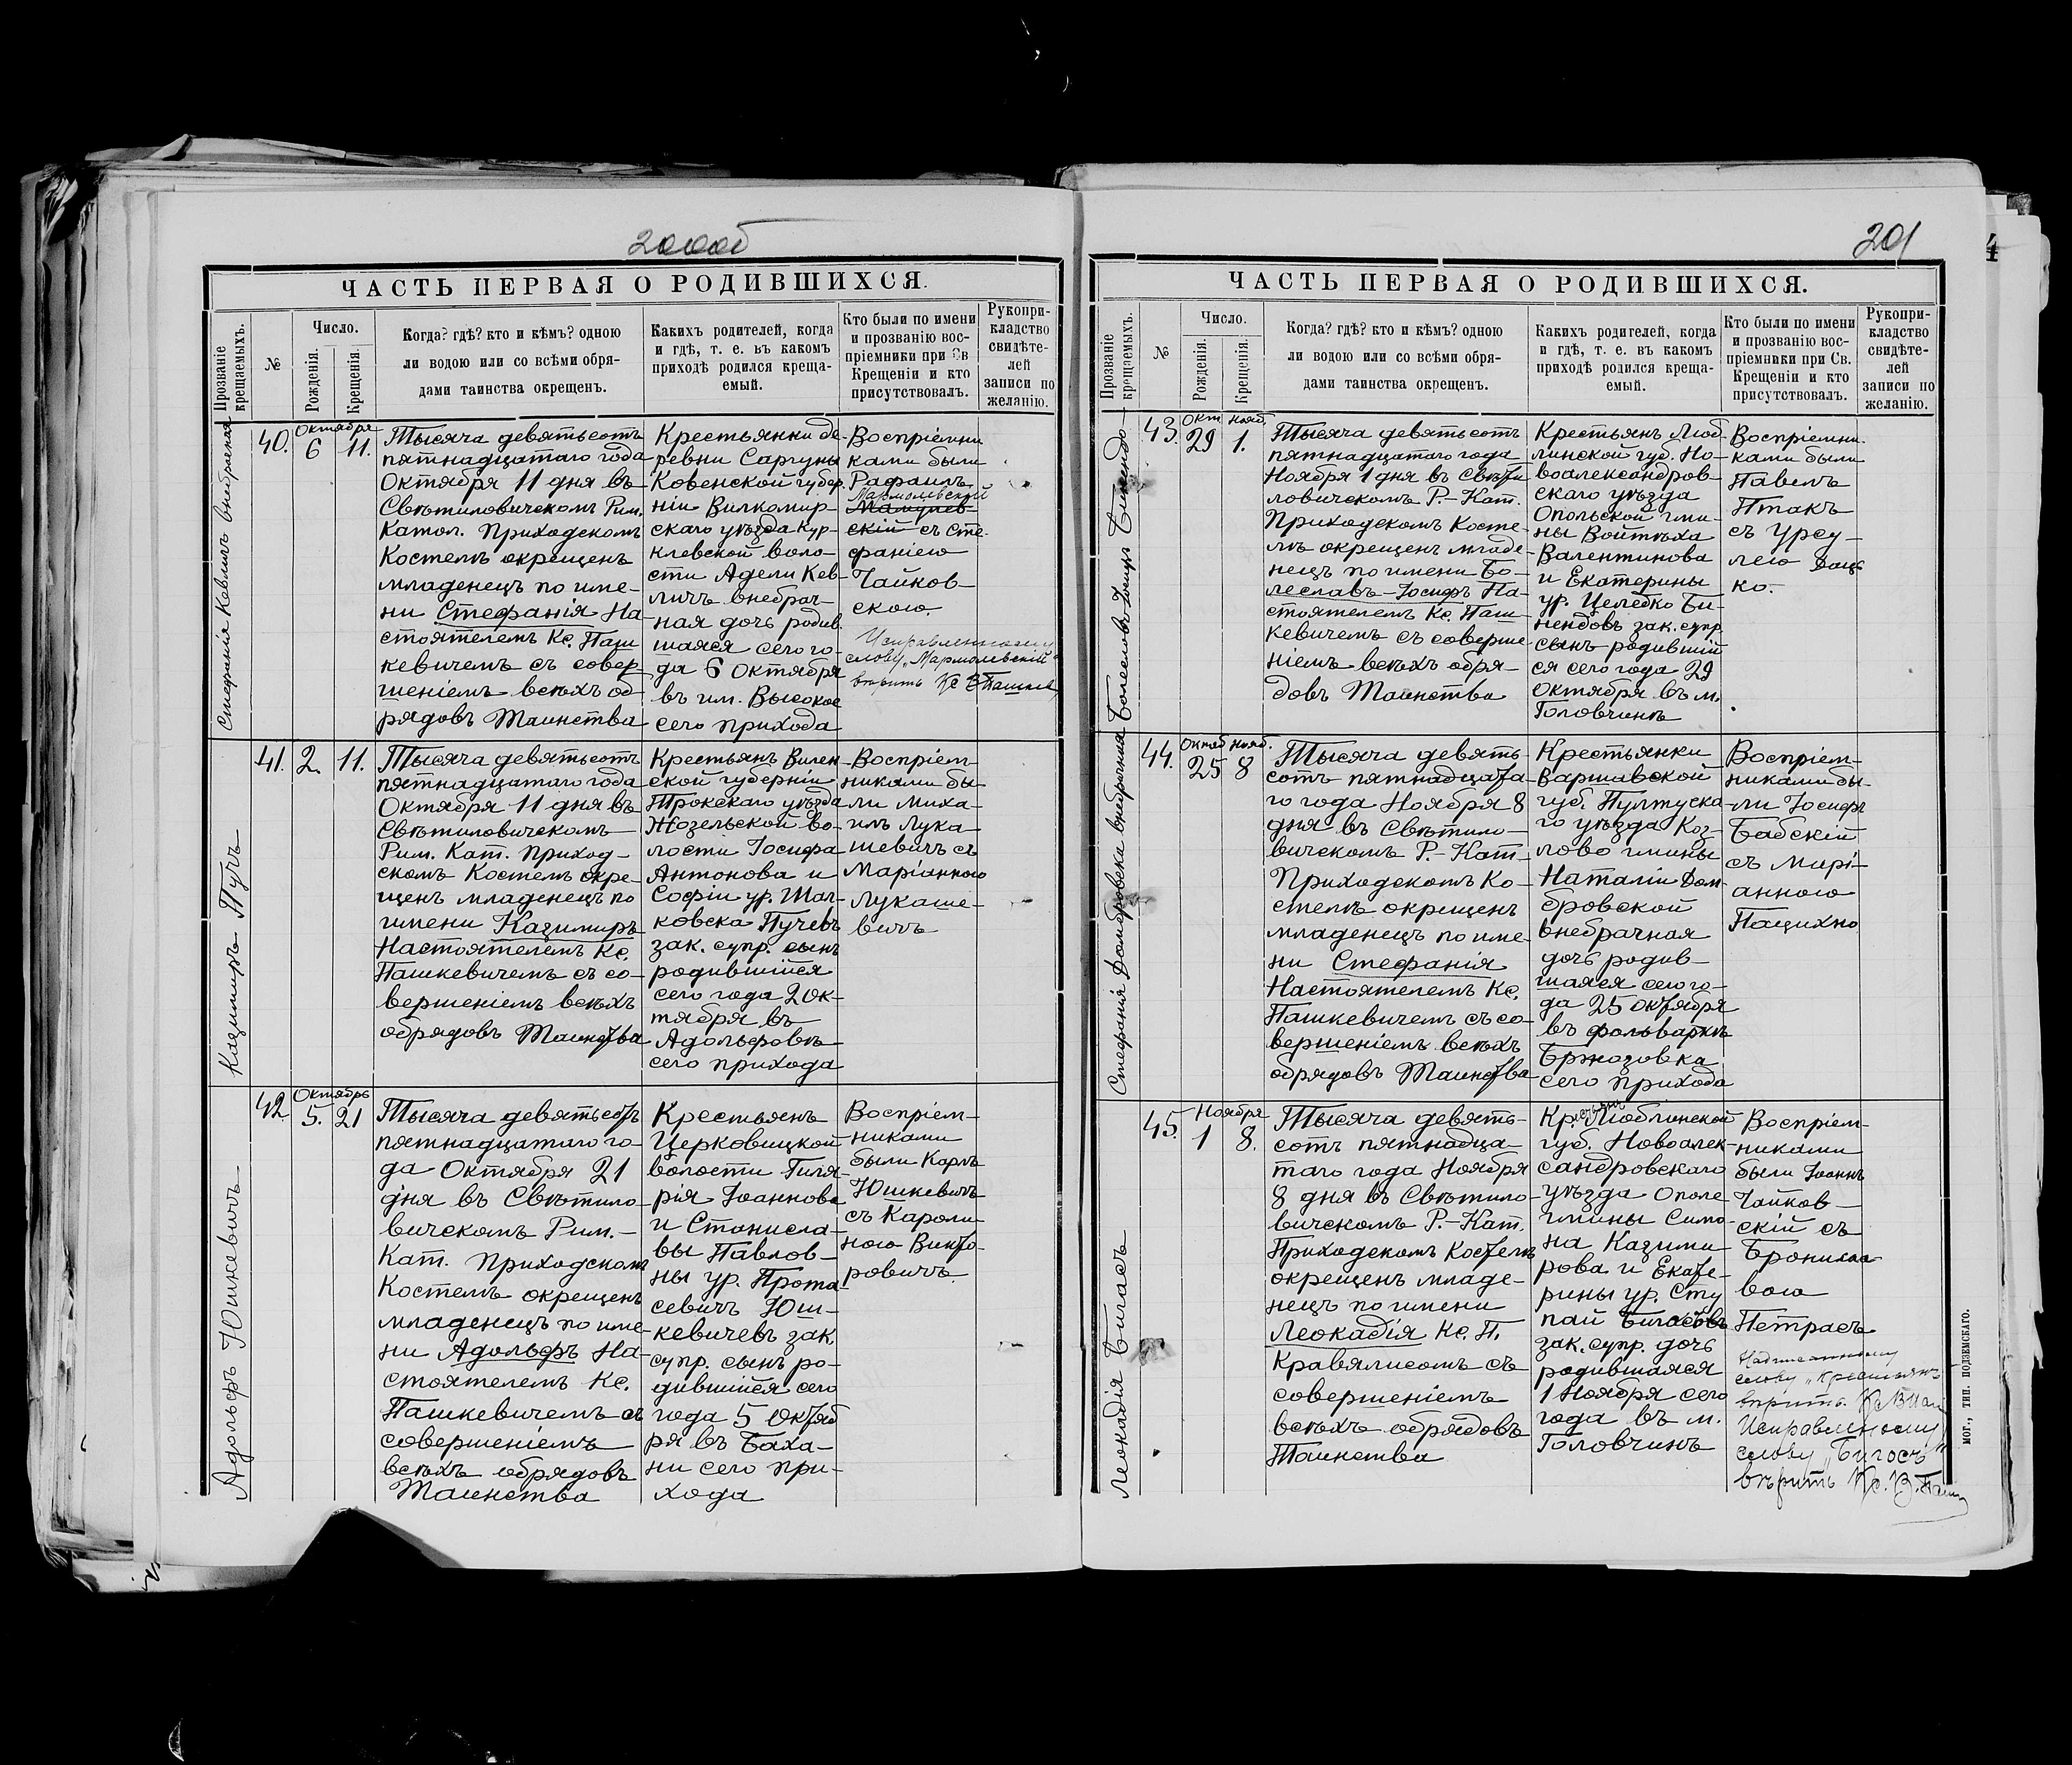 200об
ЧАСТЬ ПЕРВАЯ О РОДИВШИХСЯ.
Прозваніе крещаемыхъ.
№
Число.
Рожденія.
Крещенія.
Когда? гдѣ? кто и кѣмъ? одною
ли водою или со всѣми обря-
дами таинства окрещенъ.
Какихъ родителей, когда
и гдѣ, т. е. въ какомъ
приходѣ родился креща-
емый.
Кто были по имени
и прозванію вос-
пріемники при Св
Крещеніи и кто
присутствовалъ.
Рукопри-
кладство
свидѣте-
лей
записи по
желанію.
Стефанія Кевличъ внебрачная
40.
Октября
6 11.
Тысяча девятьсотъ
пятнадцатаго года
Октября 11 дня въ
Свѣтиловичскомъ Рим.
Катол. Приходскомъ
Костелѣ окрещенъ
младенецъ по име-
ни Стефанія На-
стоятелемъ Кс. Паш
кевичемъ съ совер-
шеніемъ всѣхъ об-
рядовъ Таинства
Крестьянки де-
ревни Саргуны
Ковенской губер.
ніи Вилкомир-
скаго уѣзда Кур-
клевской воло-
сти Адели Кев-
личъ внебрач-
ная дочь родив
шаяся сего го-
да 6 Октября
въ им. Высокое
сего прихода
Воспріемни
ками были
Рафаилъ
Мармолевскій
скій съ Сте-
фаніею
Чайков-
скою.
Исправленному
слову „Мармолевскій“
вѣрить Кс
41.
2. 11.
Казимиръ Пучъ
Тысяча девятьсотъ
пятнадцатаго года
Октября 11 дня въ
Свѣтиловичскомъ
Рим. Кат. Приход-
скомъ Костелѣ окре-
щенъ младенецъ по
имени Казимиръ
Настоятелемъ Кс.
Пашкевичемъ съ со-
вершеніемъ всѣхъ
обрядовъ Таинства
Крестьянъ Вилен
ской губерніи
Трокскаго уѣзда
Жозельской во-
лости Іосифа
Антонова и
Софіи ур. Шал-
ковска Пучевъ
зак. супр. сынъ
родившійся
сего года 2 Ок-
тября въ
Адольфовѣ
сего прихода
Воспріем-
никами бы
ли Миха-
илъ Лука
шевичъ съ
Маріанною
Лукаше-
вичъ
42.
Октябрь
5. 21
Адольфъ Юшкевичъ
Тысяча девятьсотъ
пятнадцатаго го-
да Октября 21
дня въ Свѣтило-
вичскомъ Рим.-
Кат. Приходскомъ
Костелѣ окрещенъ
младенецъ по име-
ни Адольфъ На-
стоятелемъ Кс.
Пашкевичемъ съ
совершеніемъ
всѣхъ обрядовъ
Таинства
Крестьянъ
Церковицкой
волости Гиля-
рія Іоаннова
и Станисла-
вы Павлов-
ны ур. Прота
севичъ Юш-
кевичевъ зак.
супр. сынъ ро-
дившійся сего
года 5 Октяб
ря въ Баха-
ни сего при-
хода
Воспріем-
никами
были Карлъ
Юшкевичъ
съ Кароли
ною Викто-
ровичъ.
201
4
ЧАСТЬ ПЕРВАЯ О РОДИВШИХСЯ.
Прозваніе крещаемыхъ.
№
Число.
Рожденія.
Крещенія.
Когда? гдѣ? кто и кѣмъ? одною
ли водою или со всѣми обря-
дами таинства окрещенъ.
Какихъ родителей, когда
и гдѣ, т. е. въ какомъ
приходѣ родился креща-
емый.
Кто были по имени
и прозванію вос-
пріемники при Св.
Крещеніи и кто
присутствовалъ.
Рукопри-
кладство
свидѣте-
лей
записи по
желанію.
43.
Окт Нояб.
29 1.
Болеславъ-Іосифъ
Тысяча девятьсотъ
пятнадцатаго года
Ноября 1 дня въ Свѣти
ловичскомъ Р.-Кат.
Приходскомъ Косте-
лѣ окрещенъ младе-
нецъ по имени Бо-
леславъ-Іосифъ На-
стоятелемъ Кс. Паш-
кевичемъ съ соверше-
ніемъ всѣхъ обря-
довъ Таинства
Крестьянъ Люб-
линской губ. Но-
воалександров-
скаго уѣзда
Опольской гми-
ны Войтѣха
Валентинова
и Екатерины
ур. Целебко Би-
нендовъ зак. супр.
сынъ родившій
ся сего года 29
Октября въ м.
Головчинѣ
Воспріемни-
ками были
Павелъ
Птакъ
съ Урсу-
лею
ко.
44.
Октяб Нояб.
25 8
Стефанія Домбровска внебрачная
Тысяча девять
сотъ пятнадцата-
го года Ноября 8
дня въ Свѣтило-
вичскомъ Р.-Кат-
Приходскомъ Ко-
стелѣ окрещенъ
младенецъ по име
ни Стефанія
Настоятелемъ Кс.
Пашкевичемъ съ со-
вершеніемъ всѣхъ
обрядовъ Таинства
Крестьянки
Варшавской
губ. Пултуска-
го уѣзда Коз-
лово гмины
Наталіи Дом-
бровской
внебрачная
дочь родив-
шаяся сего го-
да 25 октября
въ фольваркѣ
Бржозовка
сего прихода
Воспріем-
никами бы-
ли Іосифъ
Бабскій
съ Марі-
анною
Пацихно
45.
Ноября
1 8.
Леокадія Бигосъ
Тысяча девять-
сотъ пятнадца-
таго года Ноября
8 дня въ Свѣтило-
вичскомъ Р.-Кат.
Приходскомъ Костелѣ
окрещенъ младе-
нецъ по имени
Леокадія Кс. П.
Кравялисомъ съ
совершеніемъ
всѣхъ обрядовъ
Таинства
Крестьянъ Люблинской
губ. Новоалек-
сандровскаго
уѣзда Ополе
гмины Симо-
на Казими-
рова и Екате-
рины ур. Сту
пай Бигосовъ
зак. супр. дочь
родившаяся
1 Ноября сего
года въ м.
Головчинъ
Воспріем-
никами
были Іоаннъ
Чайков-
скій съ
Брониславою
Петрасъ
Надписанному
слову „Крестьянъ
вѣрить. Кс. В.
Исправленному
слову „Бигосъ“
вѣрить Кс. В. Паш
МОГ., ТИП. ПОДЗЕМСКАГО.